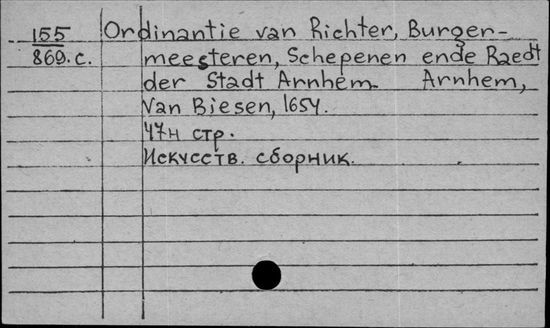 155 Ordinantie van Richter, Burger-
869.c. meesteren, Schepenen ende Raedt
der Stadt Arnhem. Arnhem,
Van Biesen, 1654.
47н стр.
Искусств. сборник.